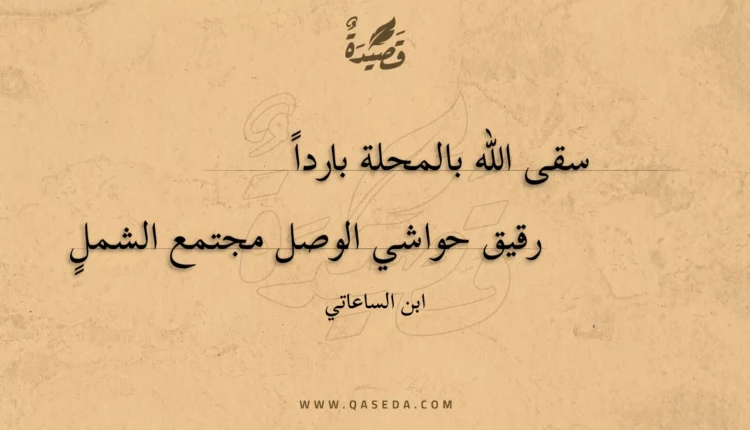 قَصِيْدَةٌ
سقى الله بالمحلة بارداً
رقيق حواشي الوصل مجتمع الشملٍ
ابن الساعاتي
WWW.QASEDA.COM